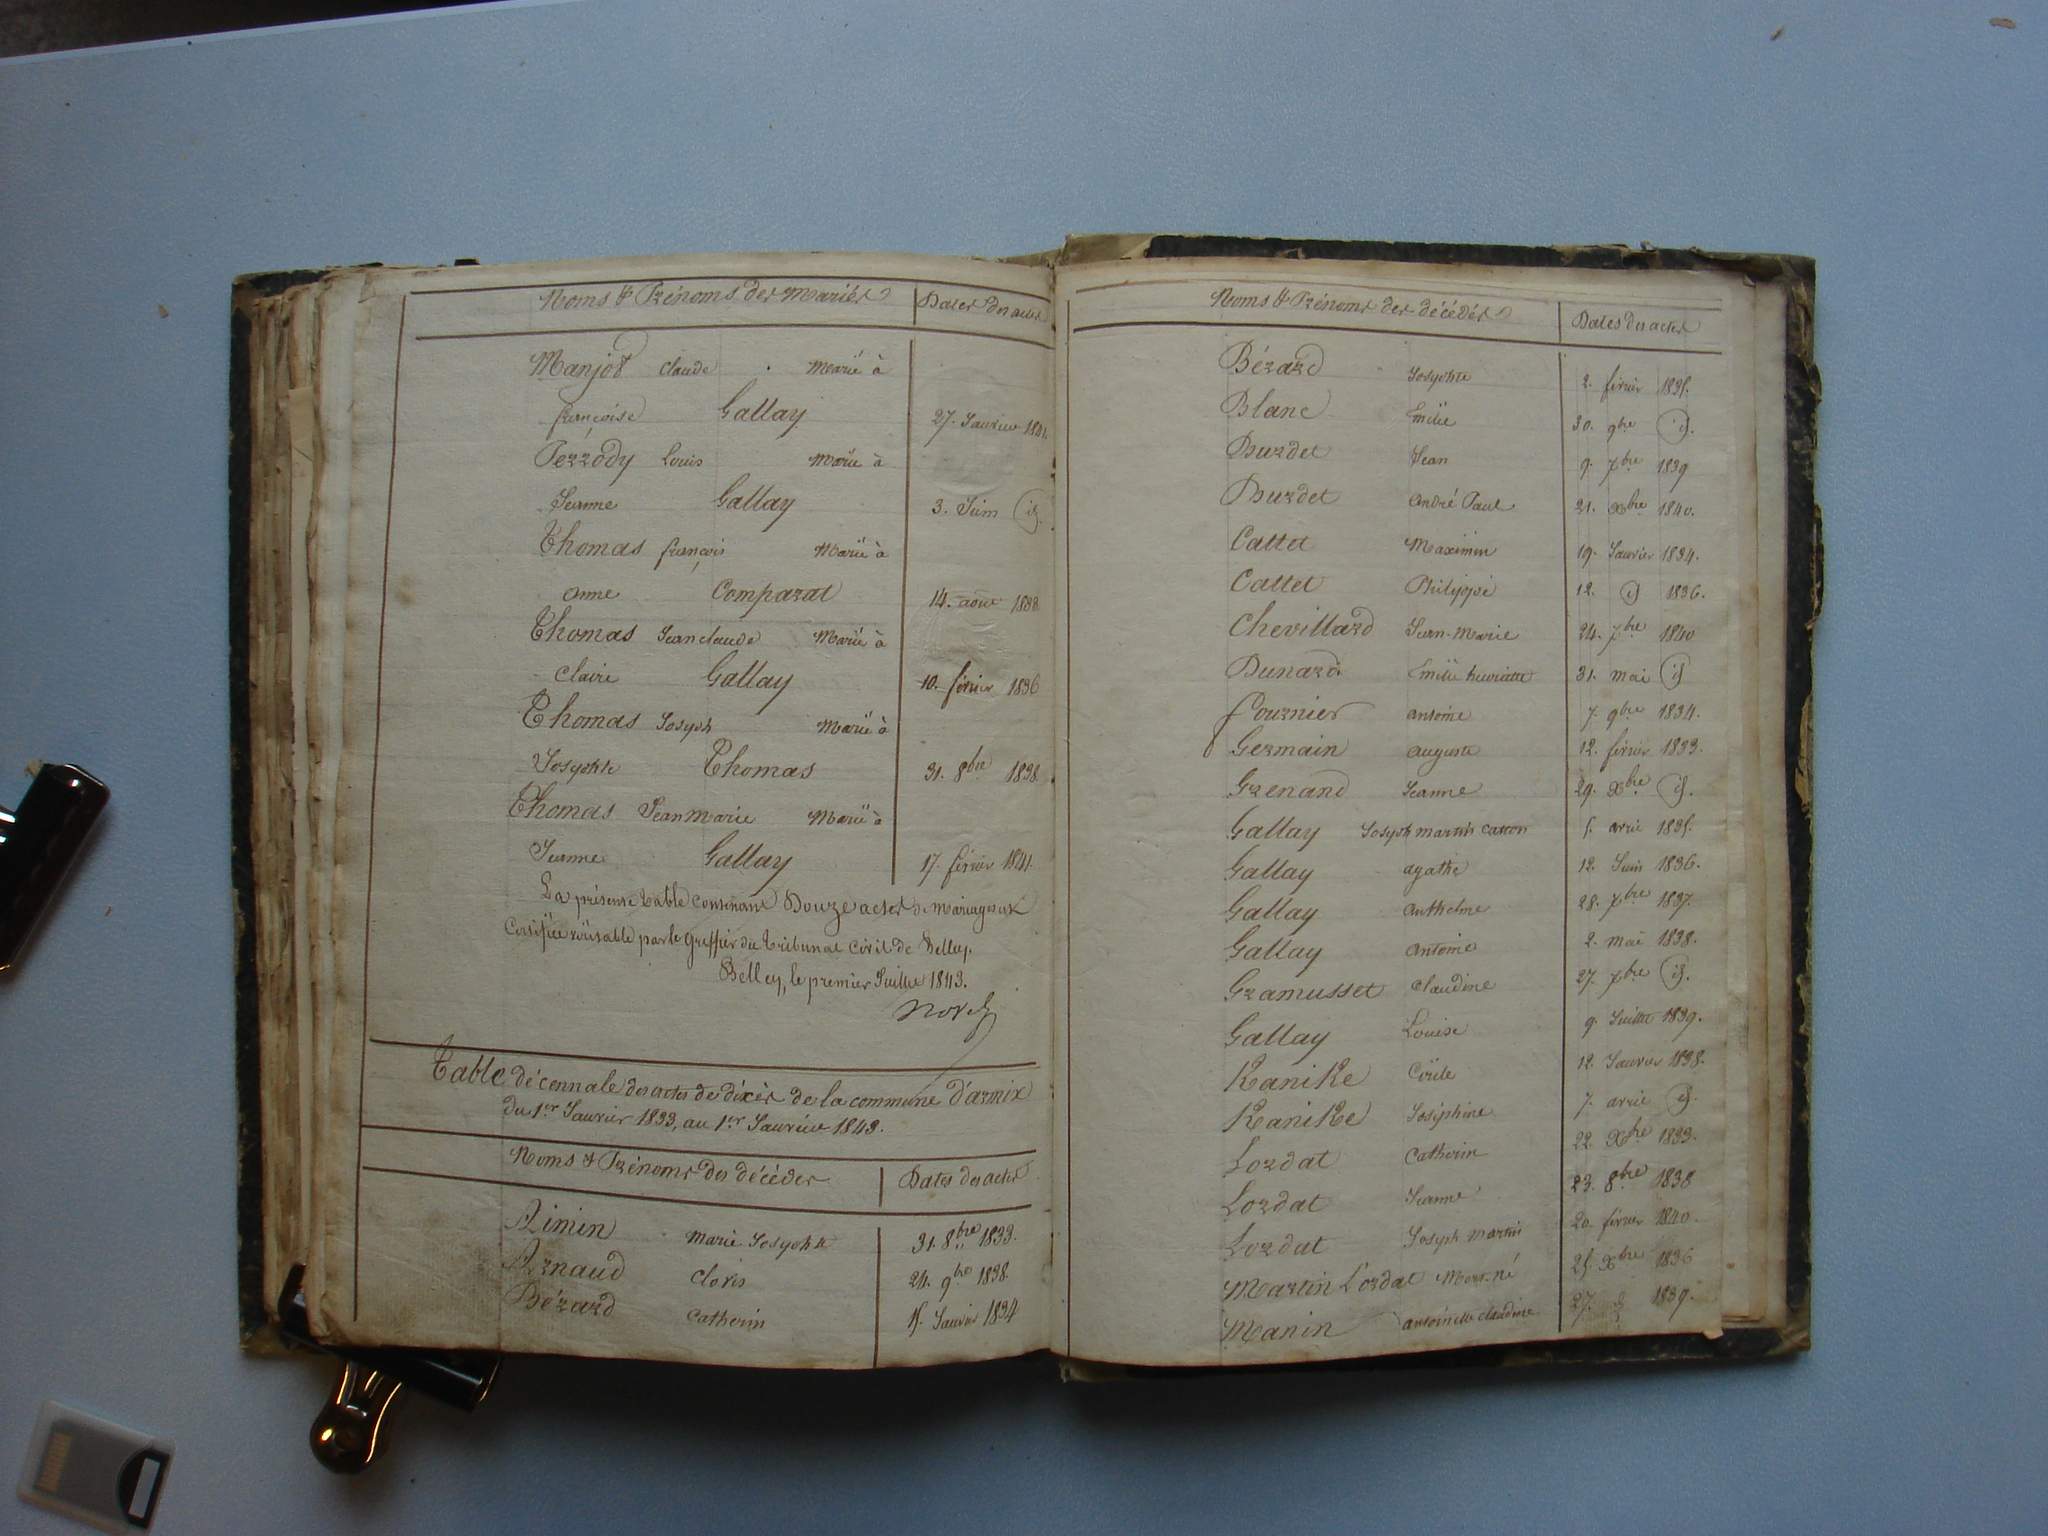 Noms & Prénoms des Mariés Dates des actes
Manjot Claude Marié à
françoise Gallay 27. Janvier 1841.
Perrody Louis Marié à
Jeanne Gallay 3. Juin id.
Thomas françois Marié à
anne Comparat 14. aout 1838
Thomas Jean claude Marié à
Claire Gallay 10. février 1836
Thomas Joseph Marié à
Josephte Thomas 31. 8bre 1838
Thomas Jean Marie Marié à
Jeanne Gallay 17. février 1841.
La présente table contenant Douze actes de Mariages est
Certifiée véritable par le Greffier du tribunal Civil de Belley.
Belley, le premier Juillet 1843.
Table décennale des actes de décès de la commune d'armix
du 1er Janvier 1833, au 1er Janvier 1843.
Noms & Prénoms des décédés Dates des actes
Aimin Marie Josephte 31. 8bre 1833.
Arnaud Clovis 24. 9bre 1838.
Bérard Catherin 15. Janvier 1834
Noms & Prénoms des décédés Dates des actes
Bérard Josephte 2. février 1835.
Blanc Emilie 30. 9bre id.
Burdet Jean 9. 7bre 1839
Burdet André Paul 21. Xbre 1840.
Cattet Maximin 19. Janvier 1834.
Cattet Philippe 12. id 1836.
Chevillard Jean-Marie 24. 7bre 1840
Dunard. Emilie henriette 31. mai id
fournier antoine 7. 9bre 1834.
Germain auguste 12. février 1833.
Grenand Jeanne 29. Xbre id.
Gallay Joseph martin Caston 5. avril 1835.
Gallay agathe 12. Juin 1836.
Gallay anthelme 28. 7bre 1837.
Gallay antoine 2. mai 1838.
Gramusset Claudine 27. 7bre id.
Gallay Louise 9. Juillet 1839.
KaniKe Cécile 12. Janvier 1838.
KaniKe Joséphine 7. avril id.
Lordat Catherin 22. Xbre 1833.
Lordat Jeanne 23. 8bre 1838
Lordat Joseph Martin 20. février 1840.
Martin Lordat Mort-né 25. Xbre 1836
Manin antoinette claudine 27. 1839.